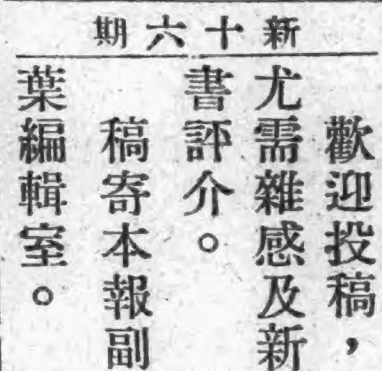 新十六期
歡迎投稿，
尤需雜感及新
書評介。
稿寄本報副
葉編輯室。